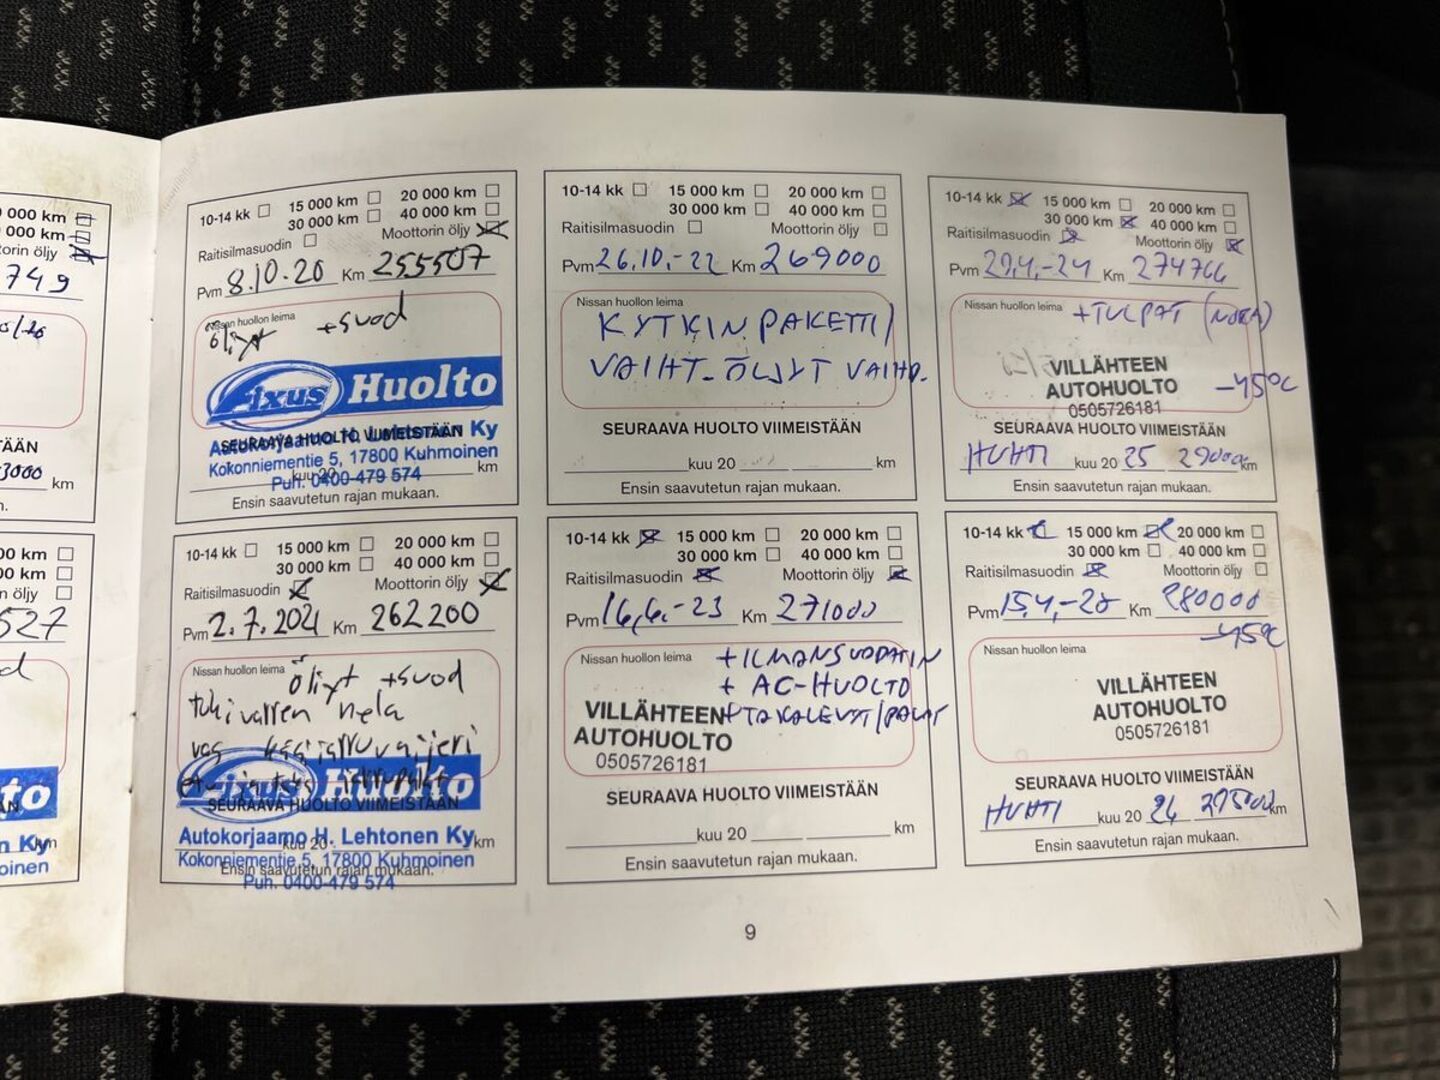 0 000 km
0 000 km
torin öljy
749
TÄÄN
3000 km
00 km
00 km
n öljy
527
to
Ky
oinen
10-14 kk 15 000 km 20 000 km
30 000 km 40 000 km
Raitisilmasuodin Moottorin öljy
Pvm 8.10.20 Km 255507
Nissan huollon leima
öljyt +suod
Fixus Huolto
Autokorjaamo H. Lehtonen Ky
SEURAAVA HUOLTO VIIMEISTÄÄN
Kokonniementie 5, 17800 Kuhmoinen
kuu 20 km
Puh. 0400-479 574
Ensin saavutetun rajan mukaan.
10-14 kk 15 000 km 20 000 km
30 000 km 40 000 km
Raitisilmasuodin Moottorin öljy
Pvm 26.10.-22 Km 269000
Nissan huollon leima
KYTKINPAKETTI/
VAIHT. ÖLJYT VAIHD.
SEURAAVA HUOLTO VIIMEISTÄÄN
kuu 20 km
Ensin saavutetun rajan mukaan.
10-14 kk 15 000 km 20 000 km
30 000 km 40 000 km
Raitisilmasuodin Moottorin öljy
Pvm 29.4.-24 Km 274766
Nissan huollon leima +TULPAT
VILLÄHTEEN
AUTOHUOLTO -45°C
0505726181
SEURAAVA HUOLTO VIIMEISTÄÄN
HUHTI kuu 20 25 km
Ensin saavutetun rajan mukaan.
10-14 kk 15 000 km 20 000 km
30 000 km 40 000 km
Raitisilmasuodin Moottorin öljy
Pvm 2.7.2021 Km 262200
Nissan huollon leima
öljyt +suod
tukivarren
vas käsijarruvaijeri
Fixus Huolto
SEURAAVA HUOLTO VIIMEISTÄÄN
Autokorjaamo H. Lehtonen Ky
kuu 20 km
Kokonniementie 5, 17800 Kuhmoinen
Ensin saavutetun rajan mukaan.
Puh. 0400-479 574
10-14 kk 15 000 km 20 000 km
30 000 km 40 000 km
Raitisilmasuodin Moottorin öljy
Pvm 16.6.-23 Km 271000
Nissan huollon leima
+ILMANSUODATIN
+ AC-HUOLTO
+TAKALEVYT/PALAT
VILLÄHTEEN
AUTOHUOLTO
0505726181
SEURAAVA HUOLTO VIIMEISTÄÄN
kuu 20 km
Ensin saavutetun rajan mukaan.
10-14 kk 15 000 km 20 000 km
30 000 km 40 000 km
Raitisilmasuodin Moottorin öljy
Pvm Km 280000
-45°C
Nissan huollon leima
VILLÄHTEEN
AUTOHUOLTO
0505726181
SEURAAVA HUOLTO VIIMEISTÄÄN
HUHTI kuu 20 26 km
Ensin saavutetun rajan mukaan.
9